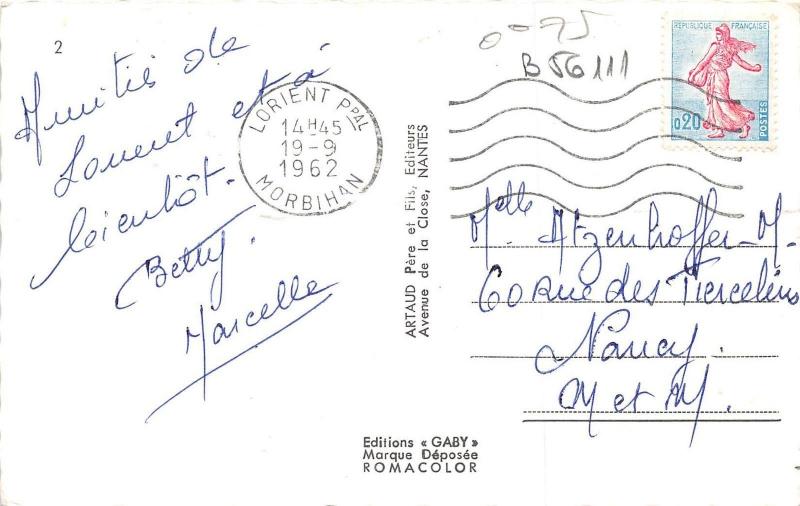 2
Amitiés de
Lorient et à
bientôt.
Betty.
Marcelle
LORIENT PPAL
14H45
19-9
1962
MORBIHAN
ARTAUD Père et Fils, Editeurs
Avenue de la Close, NANTES
0-75
B56111
RÉPUBLIQUE FRANÇAISE
0,20
POSTES
Melle Atzenhoffer-M.
60 Rue des Tiercelins
Nancy.
M et M.
Editions « GABY »
Marque Déposée
ROMACOLOR